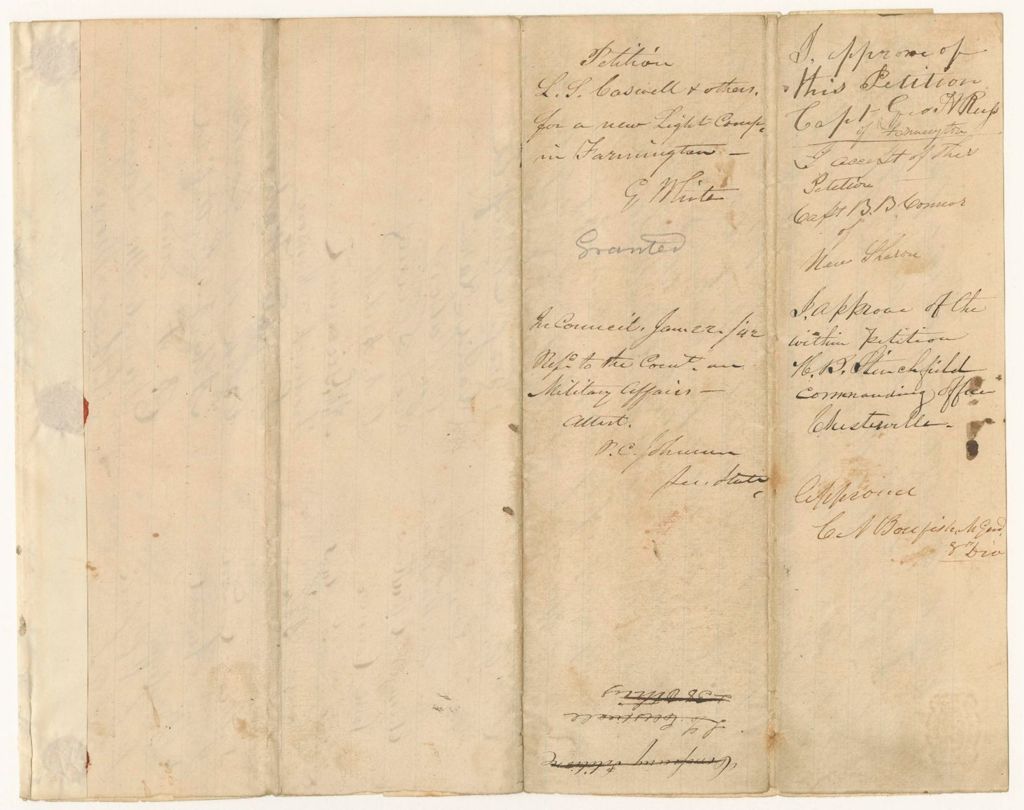 Petition
L. S. Caswell & others,
for a new Light Comp.
in Farmington —
G White
Granted
In Council, Jan 22. /42
Ref. to the Com. on
Military Affairs —
Attest.
P. C. Johnson
Sec. State
L. S. Caswell
Company Petition
I approve of
this Petition
Capt Geo
of Farmington
I accept of this
Petition
Capt B. B. Connor
of
New Sharon
I approve of the
within Petition
H. B. Stinchfield
Commanding Officer
Chesterville.
Approved
C. A M. Gen.
8th Div